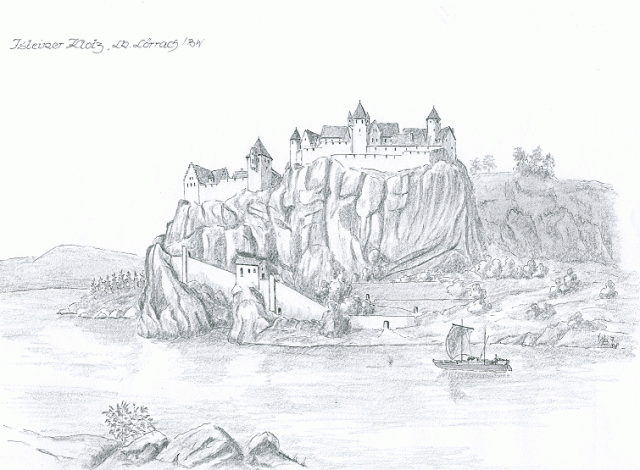 Isteiner Klotz, Lk. Lörrach / BW